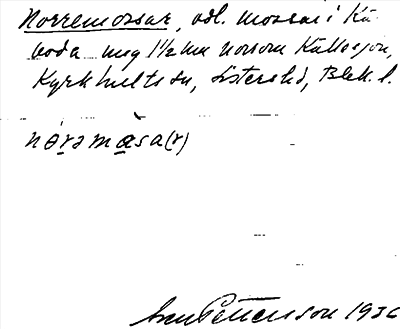 Norremossar, odl. mossar i Kå-
boda mg 1½ km norrom Källesjön,
Kyrkhults sn, Listers hd, Blek. l.
nǿrəmåsa(r)
Pettersson 1936